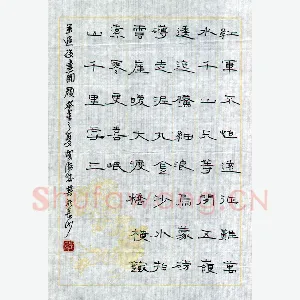 紅軍不怕遠征難萬
水千山只等閒五嶺
逶迤騰細浪烏蒙磅
礴走泥丸金沙水拍
雲崖暖大渡橋橫鐵
索寒更喜岷
山千里雪三
Shufawang.CN